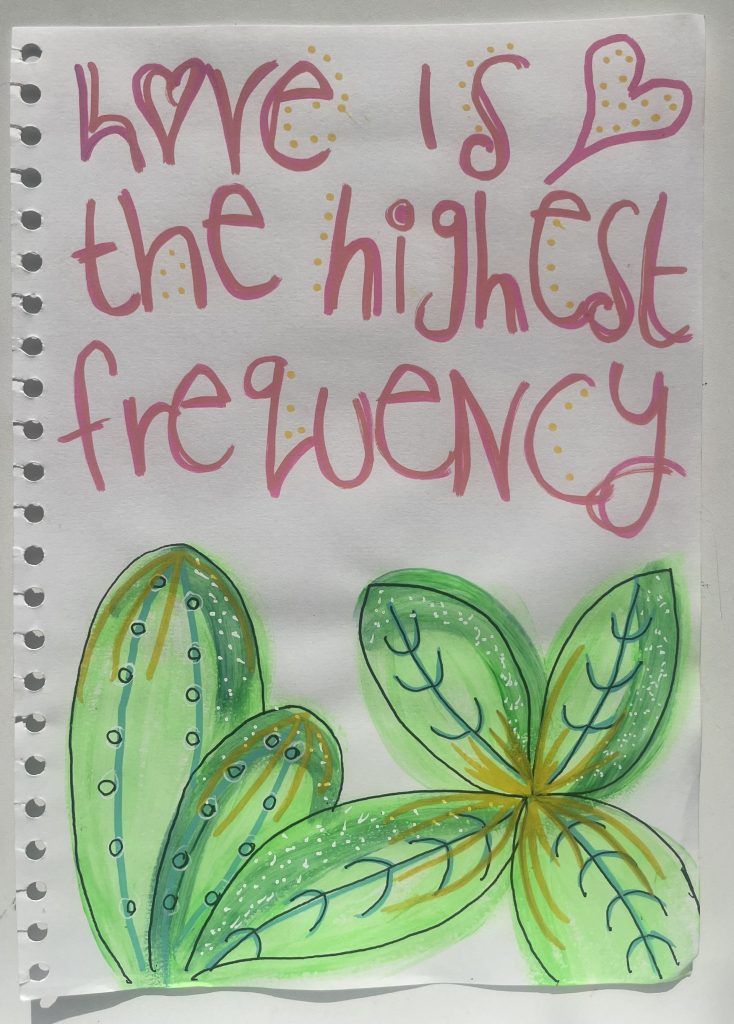 Love is
the highest
frequency